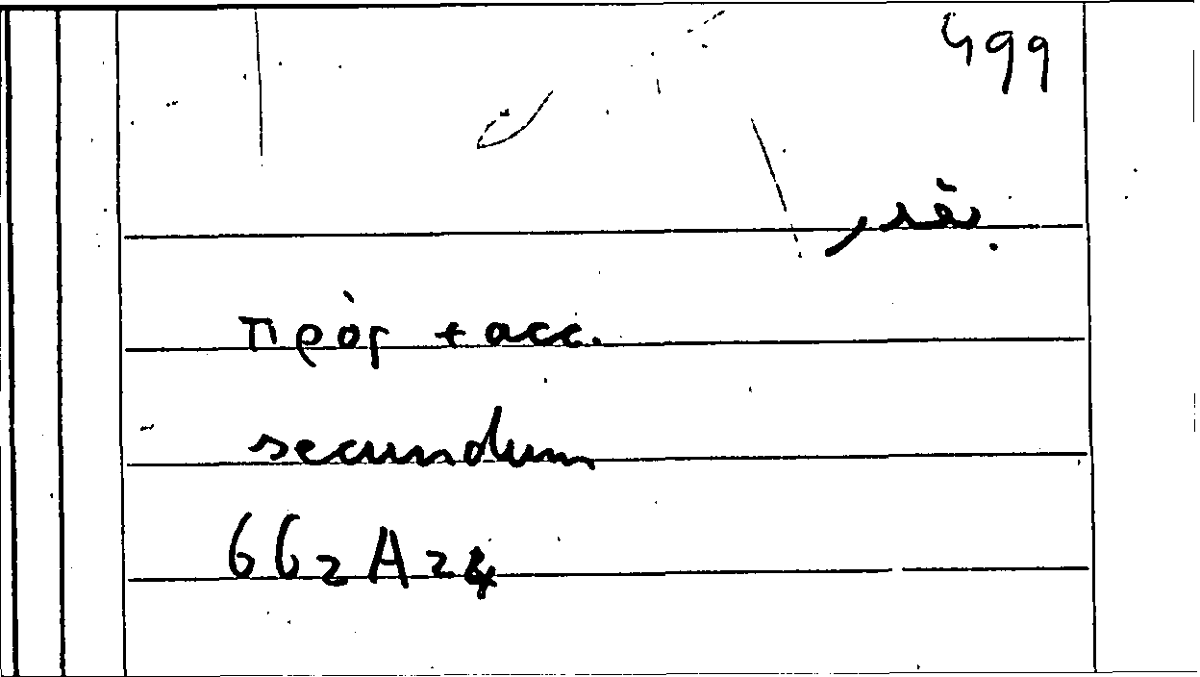 499
بقدر
πρὸς + acc.
secundum
662 A 24